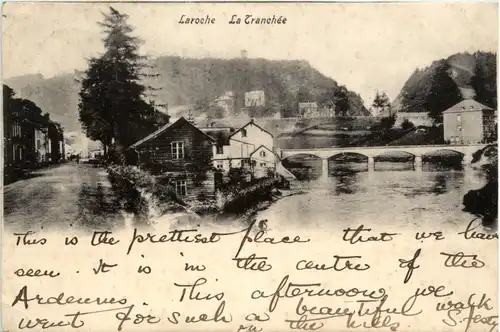 Laroche La Tranchée
This is the prettiest place that we have
seen. It is in the centre of the
Ardennes. This afternoon we
went for such a beautiful walk
on the hills